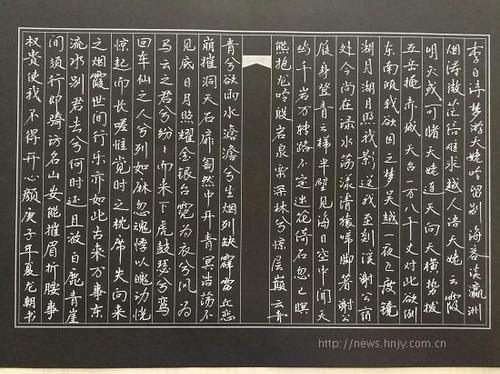 李白诗梦游天姥吟留别 海客谈瀛洲
烟涛微茫信难求越人语天姥云霞
明灭或可睹天姥连天向天横势拔
五岳掩赤城天台一万八千丈对此欲倒
东南倾我欲因之梦吴越一夜飞度镜
湖月湖月照我影送我至剡溪谢公宿
处今尚在渌水荡漾清猿啼脚著谢公
屐身登青云梯半壁见海日空中闻天
鸡千岩万转路不定迷花倚石忽已暝
熊咆龙吟殷岩泉栗深林兮惊层巅云青
青兮欲雨水澹澹兮生烟列缺霹雳丘峦
崩摧洞天石扉訇然中开青冥浩荡不
见底日月照耀金银台霓为衣兮风为
马云之君兮纷々而来下虎鼓瑟兮鸾
回车仙之人兮列如麻忽魂悸以魄动恍
惊起而长嗟惟觉时之枕席失向来
之烟霞世间行乐亦如此古来万事东
流水别君去兮何时还且放白鹿青崖
间须行即骑访名山安能摧眉折腰事
权贵使我不得开心颜庚子年夏龙朝书
http://news.hnjy.com.cn